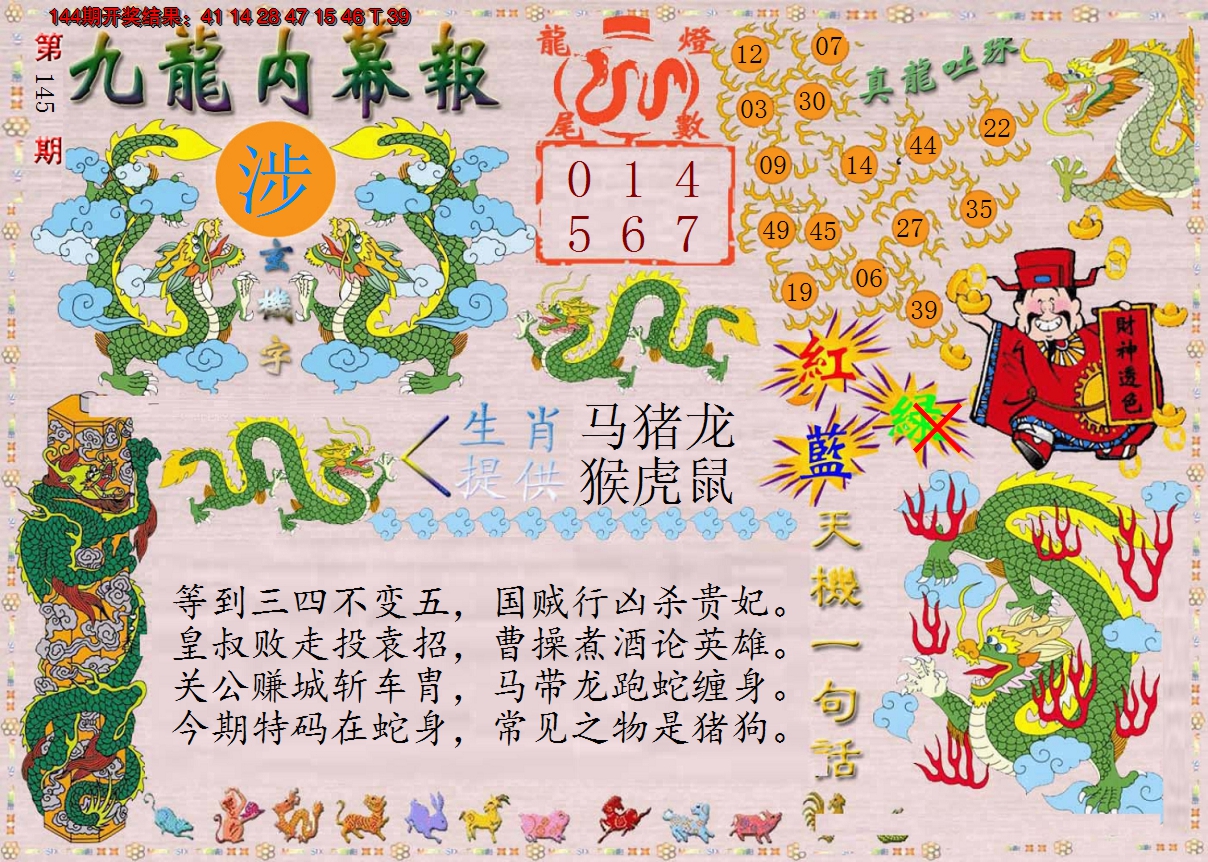 144期开奖结果：41 14 28 47 15 46 T 39
第145期
九龍内幕報
涉
玄機字
龍燈
尾數
0 1 4
5 6 7
真龍吐珠
12 07
03 30
44 22
09 14
35
49 45 27
06
19 39
紅
綠
藍
財神透色
生肖 马猪龙
提供 猴虎鼠
天機一句话
等到三四不变五，国贼行凶杀贵妃。
皇叔败走投袁招，曹操煮酒论英雄。
关公赚城斩车胄，马带龙跑蛇缠身。
今期特码在蛇身，常见之物是猪狗。